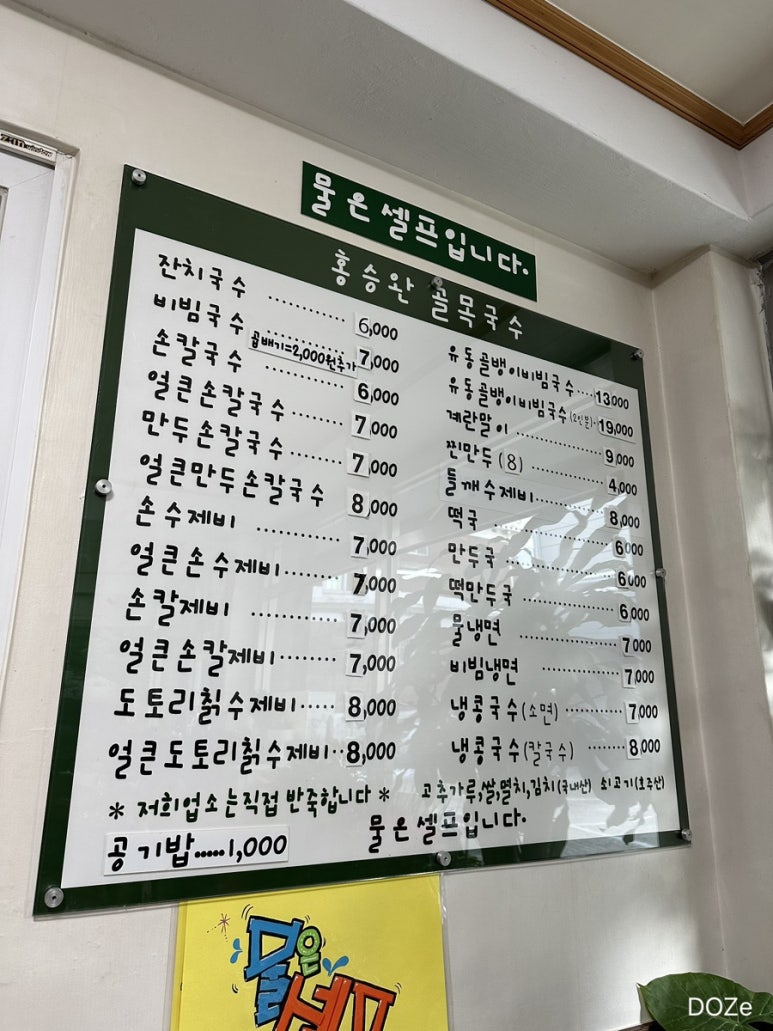 물은 셀프입니다.
홍승완 골목국수
잔치국수 ............ 6,000
비빔국수 ............ 7,000
곱배기=2,000원추가
손칼국수 ............ 6,000
얼큰손칼국수 ...... 7,000
만두손칼국수 ...... 7,000
얼큰만두손칼국수 8,000
손수제비 ............ 7,000
얼큰손수제비 ...... 7,000
손칼제비 ............ 7,000
얼큰손칼제비 ........ 7,000
도토리칡수제비 ..... 8,000
얼큰도토리칡수제비 .. 8,000
유동골뱅이비빔국수 .... 13000
유동골뱅이비빔국수(2인분) . 19,000
계란말이 ............ 9,000
찐만두(8) ............ 4,000
들깨수제비 ............ 8,000
떡국 ............ 6000
만두국 ............ 6000
떡만두국 ............ 6,000
물냉면 ............ 7000
비빔냉면 ............ 7,000
냉콩국수(소면) ............ 7,000
냉콩국수(칼국수) ........ 8,000
* 저희업소는직접 반죽합니다 *
고추가루,쌀,멸치,김치(국내산) 쇠고기(호주산)
공기밥......1,000
물은 셀프입니다.
물은
셀프
DOZe